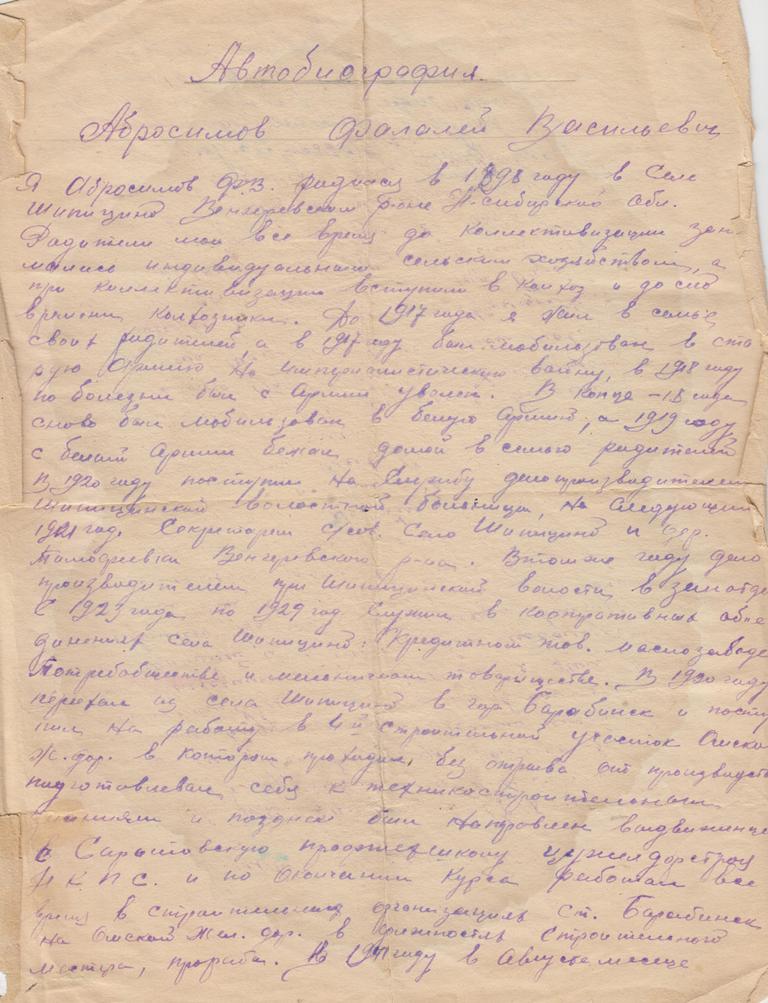 Автобиография.
Абросимов Фалалей Васильевич
Я Абросимов Ф.В. родился в 1898 году в Селе
Шипицино Венгеревском р-оне Н-Сибирской обл.
Родители мои все время до коллективизации зан-
мались индивидуальным сельским хозяйством, а
при коллективизации вступили в колхоз и до сего
времени колхозники. До 1917 года я жил в семье
своих родителей, а в 1917 году был мобилизован в ста
рую Армию на империалистическую войну, в 1918 году
по болезни был с Армии уволен. В конце -18 года
снова был мобилизован в белую Армию, а 1919 году
с белой Армии бежал домой в семью родителей
В 1920 году поступил на службу делопроизводителем
Шипицинской волостной больницы, на следующий
1921 год. Секретарем с/сов. Село Шипицино и дер.
Тимофеевка Венгеревского р-на. В том же году дело
производителем при Шипицинской волости в земотде
С 1923 года по 1929 год служил в кооперативных объе
динениях села Шипицино: Кредитном тов. маслозаводе
Потребобществе и мельничном товариществе. В 1930 году
переехал из села Шипицино в гор Барабинск и посту
пил на работу в 4й строительный участок Омско
ж. дор. в котором проходил, без отрыва от производств
подготовлевал себя к техникостроительным
знаниям и позднее был направлен выдвиженце
в Саратовскую
Н К П С. и по окончании курса работал все
время в строительных организациях ст. Барабинск
на Омской Жел. дор. в должностях строительного
мастера, прораба. В 1941 году в Августе месяце